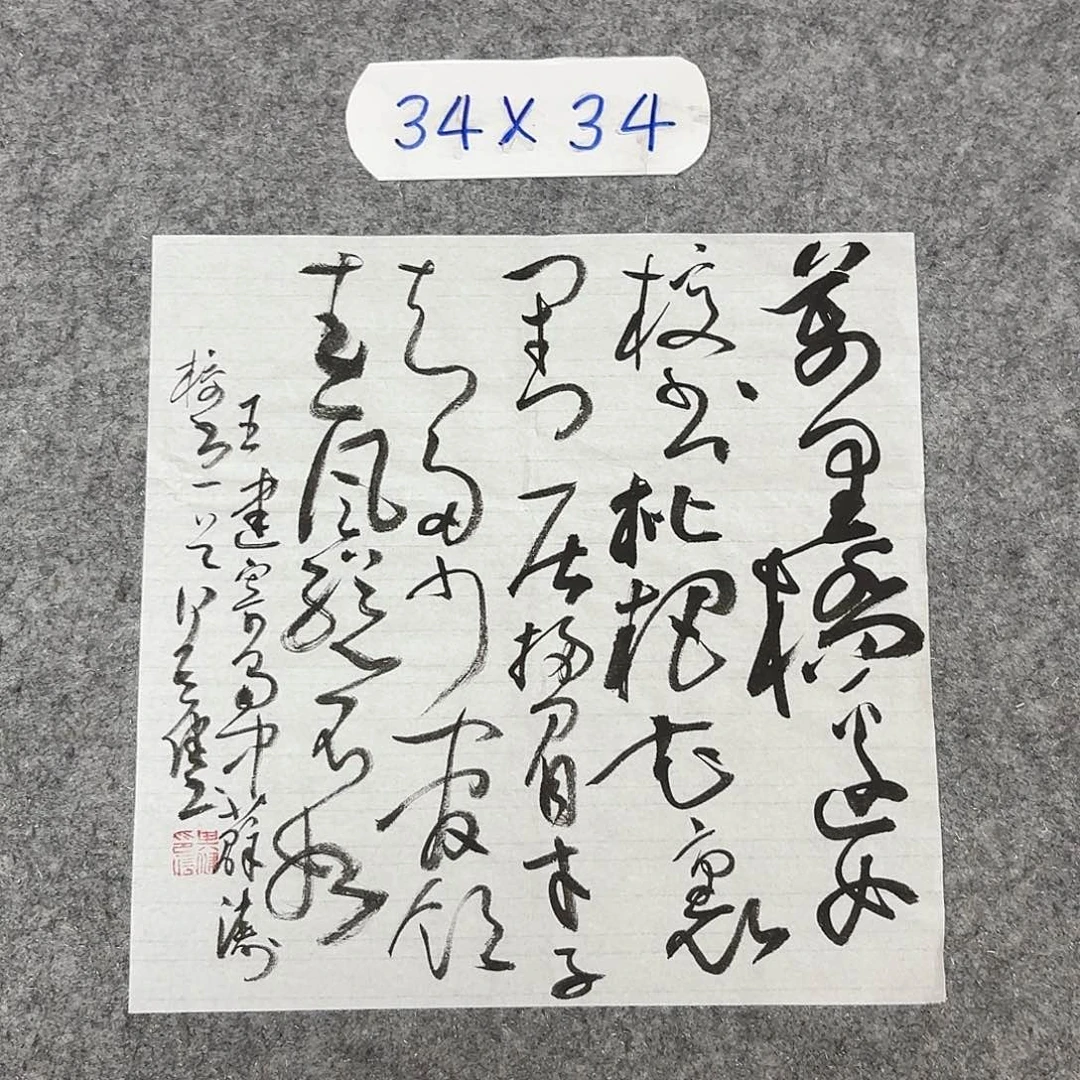 34X34
萬里橋邊女
校书枇杷花裏
闭门居掃眉才子
知多少管领
春風總不如
王建寄蜀中薛濤
校书一首